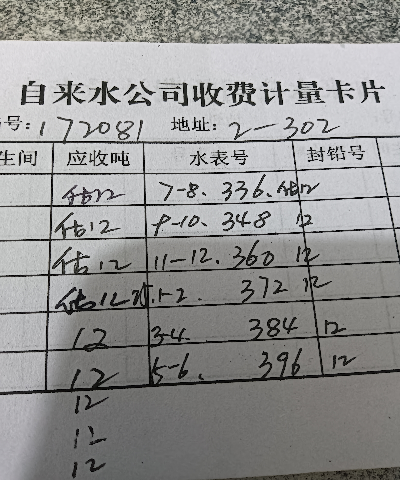 自来水公司收费计量卡片
号: 172081 地址: 2-302
生间 应收吨 水表号 封铅号
估12 7-8. 336. 估12
估12 9-10. 348 12
估12 11-12. 360 12
估12 1-2. 372 12
12 3-4. 384 12
12 5-6. 396 12
12
12
12